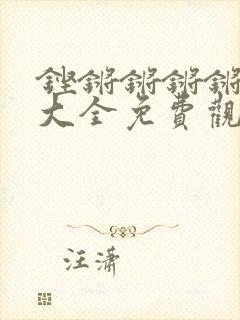 鏗鏘鏘鏘鏘
大全免費觀
汪瀟